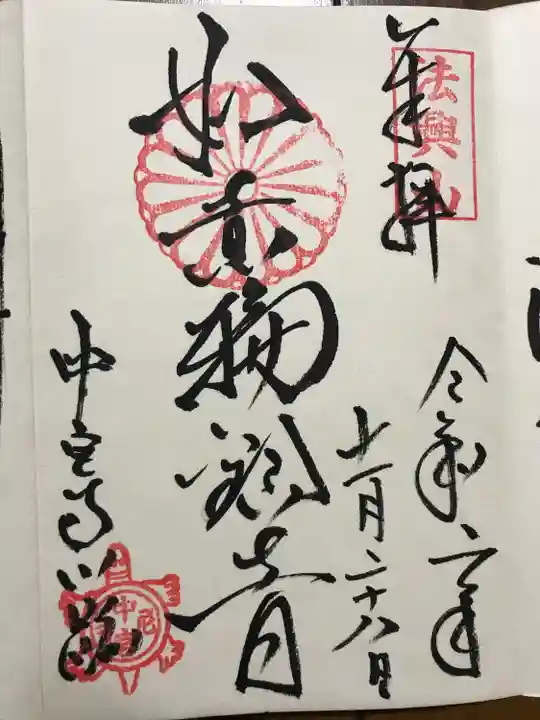 奉拝
法興山
令和二年
十一月二十八日
如意輪観音
中宮寺門跡
中宮